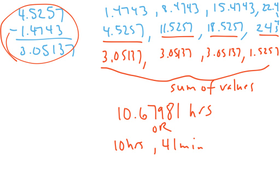 4.5257
-1.4743
3.05137
1.4743, 8.4743, 15.4743, 22.4
4.5257, 11.5257, 18.5257, 243
3.05137, 3.05137, 3.05137, 1.5257
sum of values
10.67981 hrs
OR
10hrs, 41min